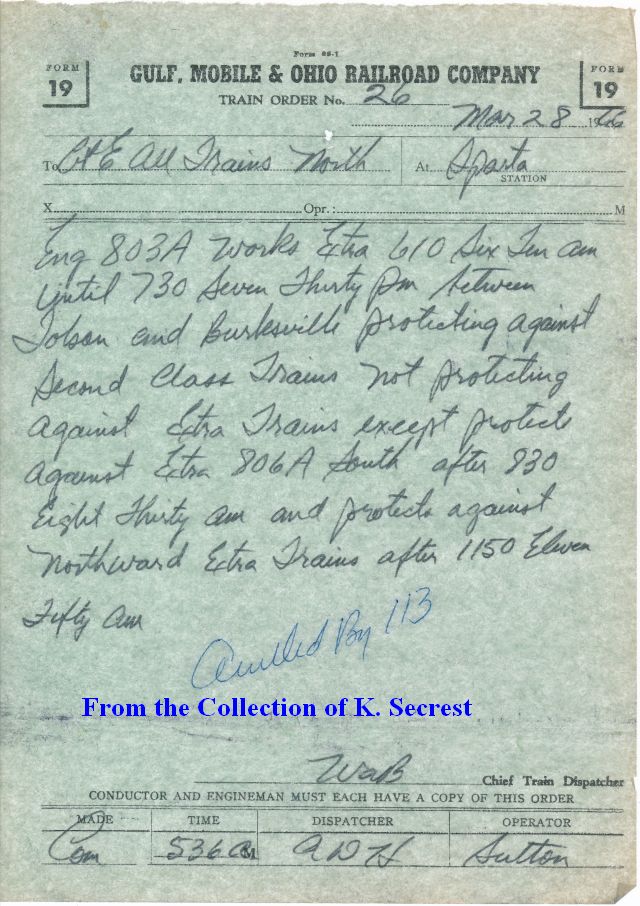 Form 88-1
FORM 19
GULF, MOBILE & OHIO RAILROAD COMPANY
FORM 19
TRAIN ORDER No. 26
Mar 28 1966
To C&E All Trains North At Sparta
STATION
X Opr.: M
Eng 803A Works Extra 610 Six Ten am
Until 730 Seven Thirty Pm between
Tolson and Burksville protecting against
Second Class Trains not protecting
against Extra Trains except protects
against Extra 806A South after 830
Eight Thirty am and protects against
Northward Extra Trains after 1150 Eleven
Fifty am
Anulled By 113
From the Collection of K. Secrest
WaB Chief Train Dispatcher
CONDUCTOR AND ENGINEMAN MUST EACH HAVE A COPY OF THIS ORDER
MADE TIME DISPATCHER OPERATOR
Com 536 a M ADH Sutton